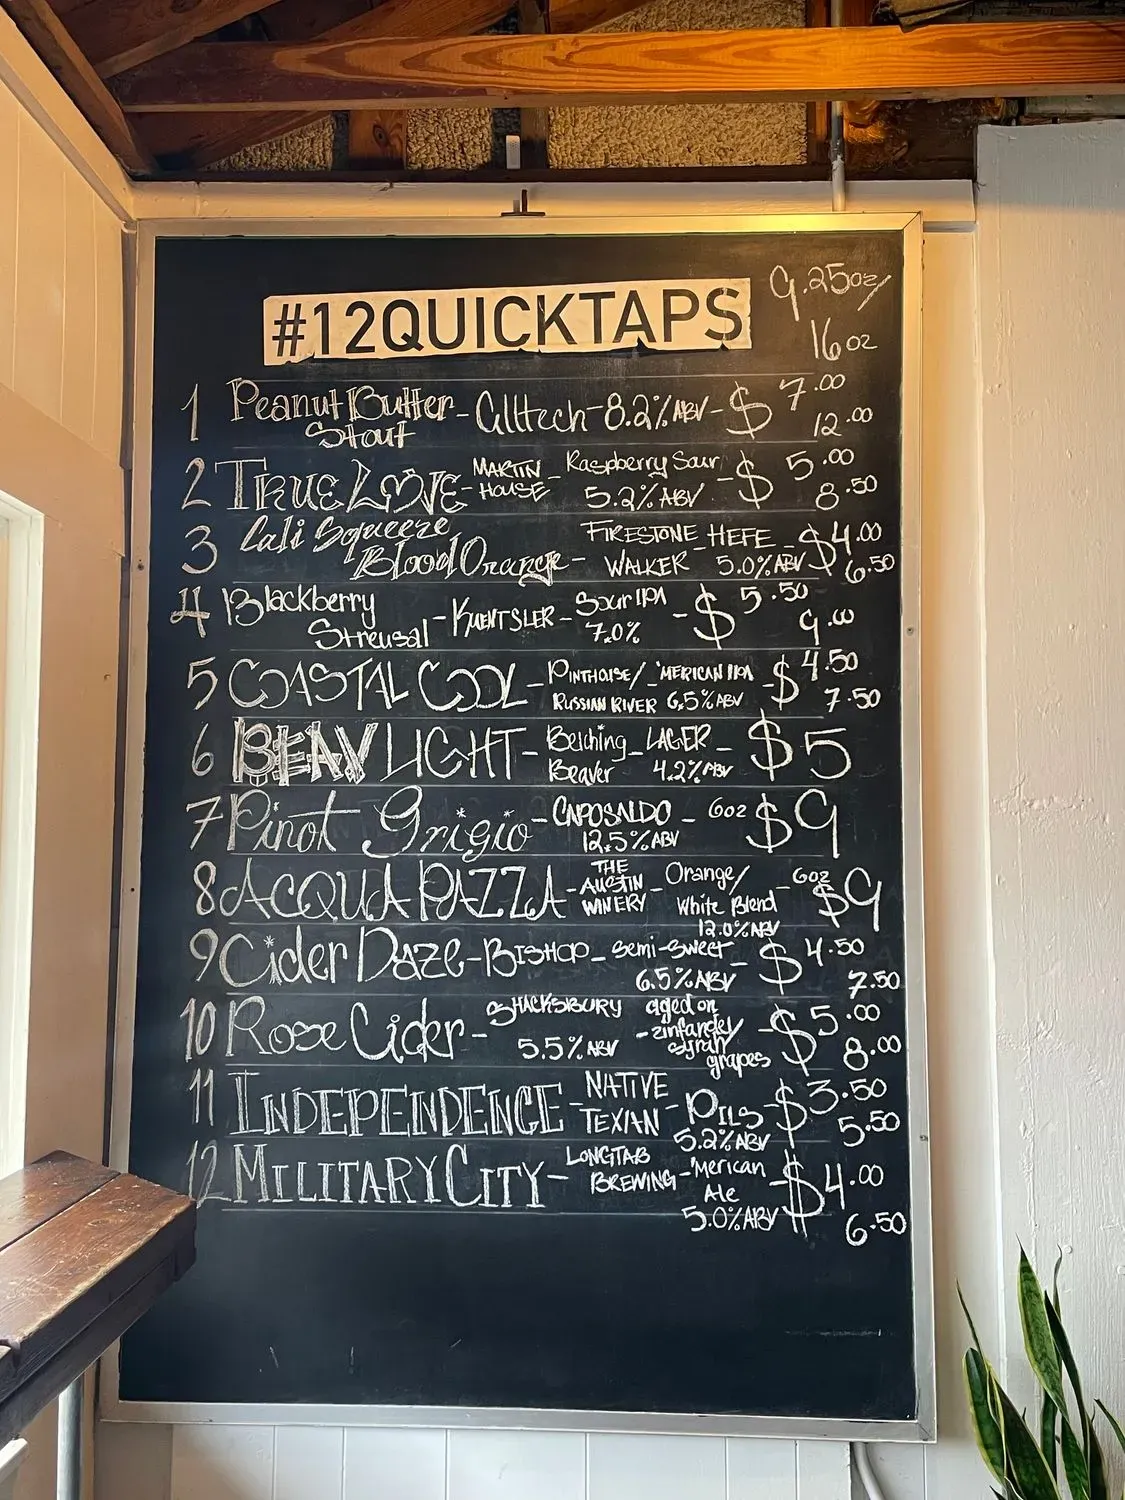 #12QUICKTAPS
9.25oz/
16oz
1 Peanut Butter Stout - Alltech - 8.2% ABV - $ 7.00 12.00
2 TRUE LOVE - MARTIN HOUSE - Raspberry Sour 5.2% ABV - $ 5.00 8.50
3 Cali Squeeze Blood Orange - FIRESTONE WALKER - HEFE 5.0% ABV - $4.00 6.50
4 Blackberry Streusal - KUENTSLER - Sour IPA 7.0% - $ 5.50 9.00
5 COASTAL COOL - PINTHOUSE/ RUSSIAN RIVER - 'MERICAN IPA 6.5% ABV - $ 4.50 7.50
6 BEAV LIGHT - Belching Beaver - LAGER 4.2% ABV - $5
7 Pinot Grigio - CAPOSALDO 12.5% ABV - 6oz $9
8 ACQUA PAZZA - THE AUSTIN WINERY - Orange/ White Blend 12.0% ABV - 6oz $9
9 Cider Daze - BISHOP - Semi-Sweet 6.5% ABV - $ 4.50 7.50
10 Rose Cider - SHACKSBURY 5.5% ABV - aged on zinfandel/ syrah grapes - $5.00 8.00
11 INDEPENDENCE - NATIVE TEXIAN - PILS 5.2% ABV - $3.50 5.50
12 MILITARY CITY - LONGTAB BREWING - 'Merican Ale 5.0% ABV - $4.00 6.50